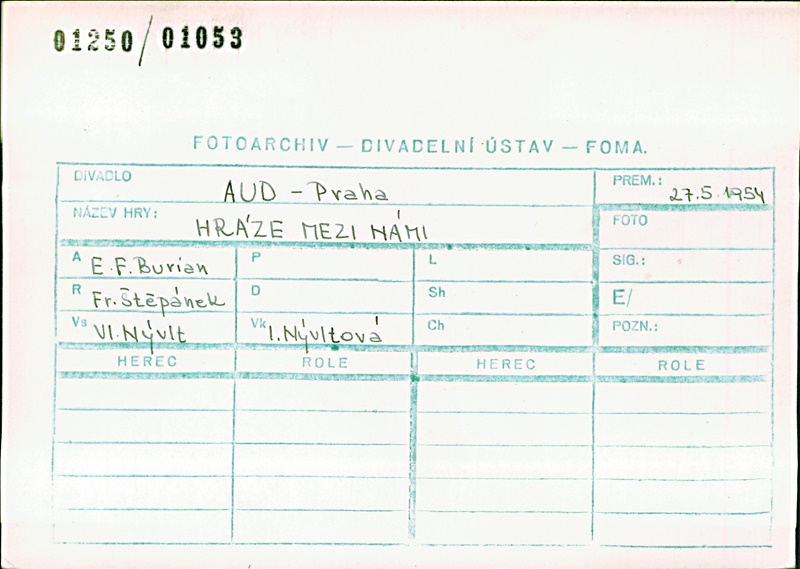 01250/01053
FOTOARCHIV — DIVADELNÍ ÚSTAV — FOMA.
DIVADLO AUD - Praha PREM.: 27.5.1954
NÁZEV HRY: HRÁZE MEZI NÁMI FOTO
A E.F.Burian P L SIG.:
R Fr.Štěpánek D Sh E/
Vs Vl.Nývlt Vk I.Nývltová Ch POZN.:
HEREC ROLE HEREC ROLE